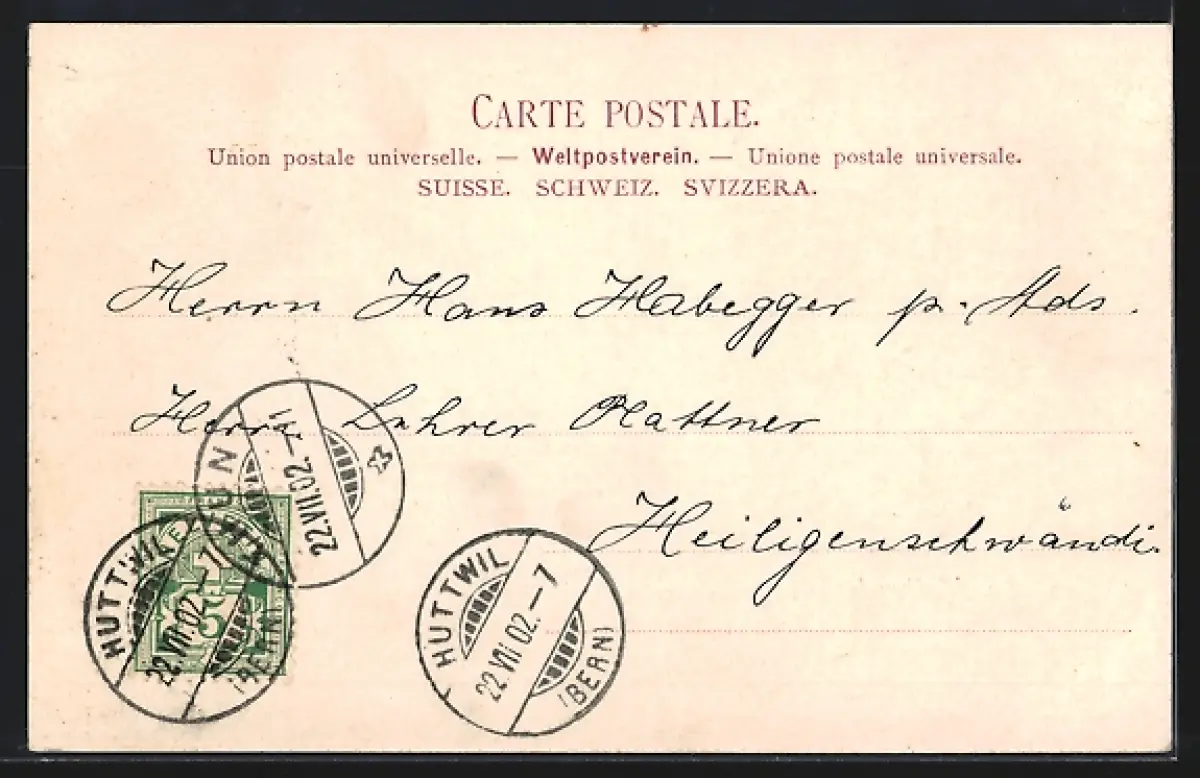 CARTE POSTALE.
Union postale universelle. — Weltpostverein. — Unione postale universale.
SUISSE. SCHWEIZ. SVIZZERA.
Herrn Hans Habegger p. Ads.
Herrn Lehrer Plattner
Heiligenschwändi.
THUN
22.VII.02.–
HUTTWIL
22.VII.02.–7
(BERN)
5
HUTTWIL
22.VII.02.–7
(BERN)